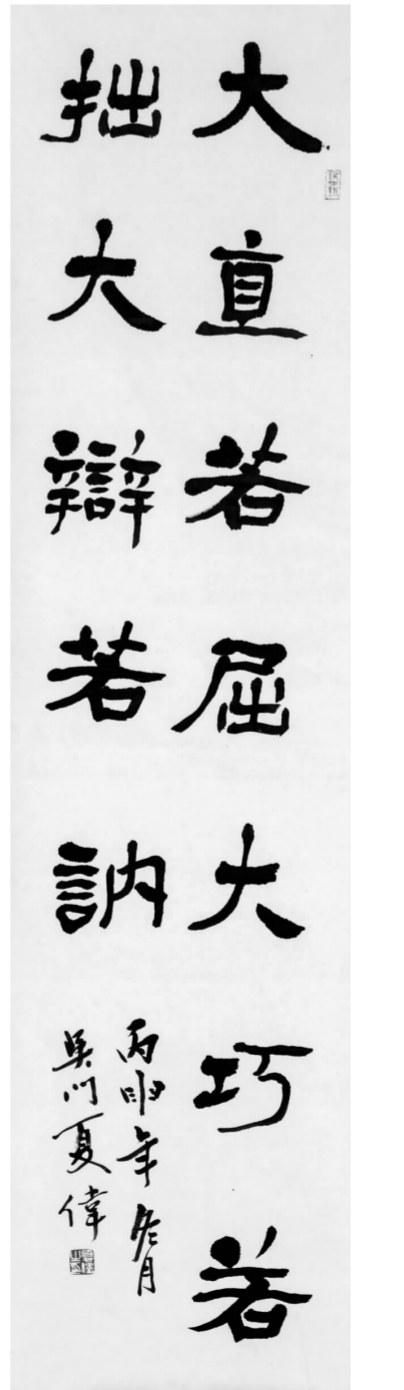 大直若屈大巧若
拙大辯若訥
丙申年冬月
吳門夏偉